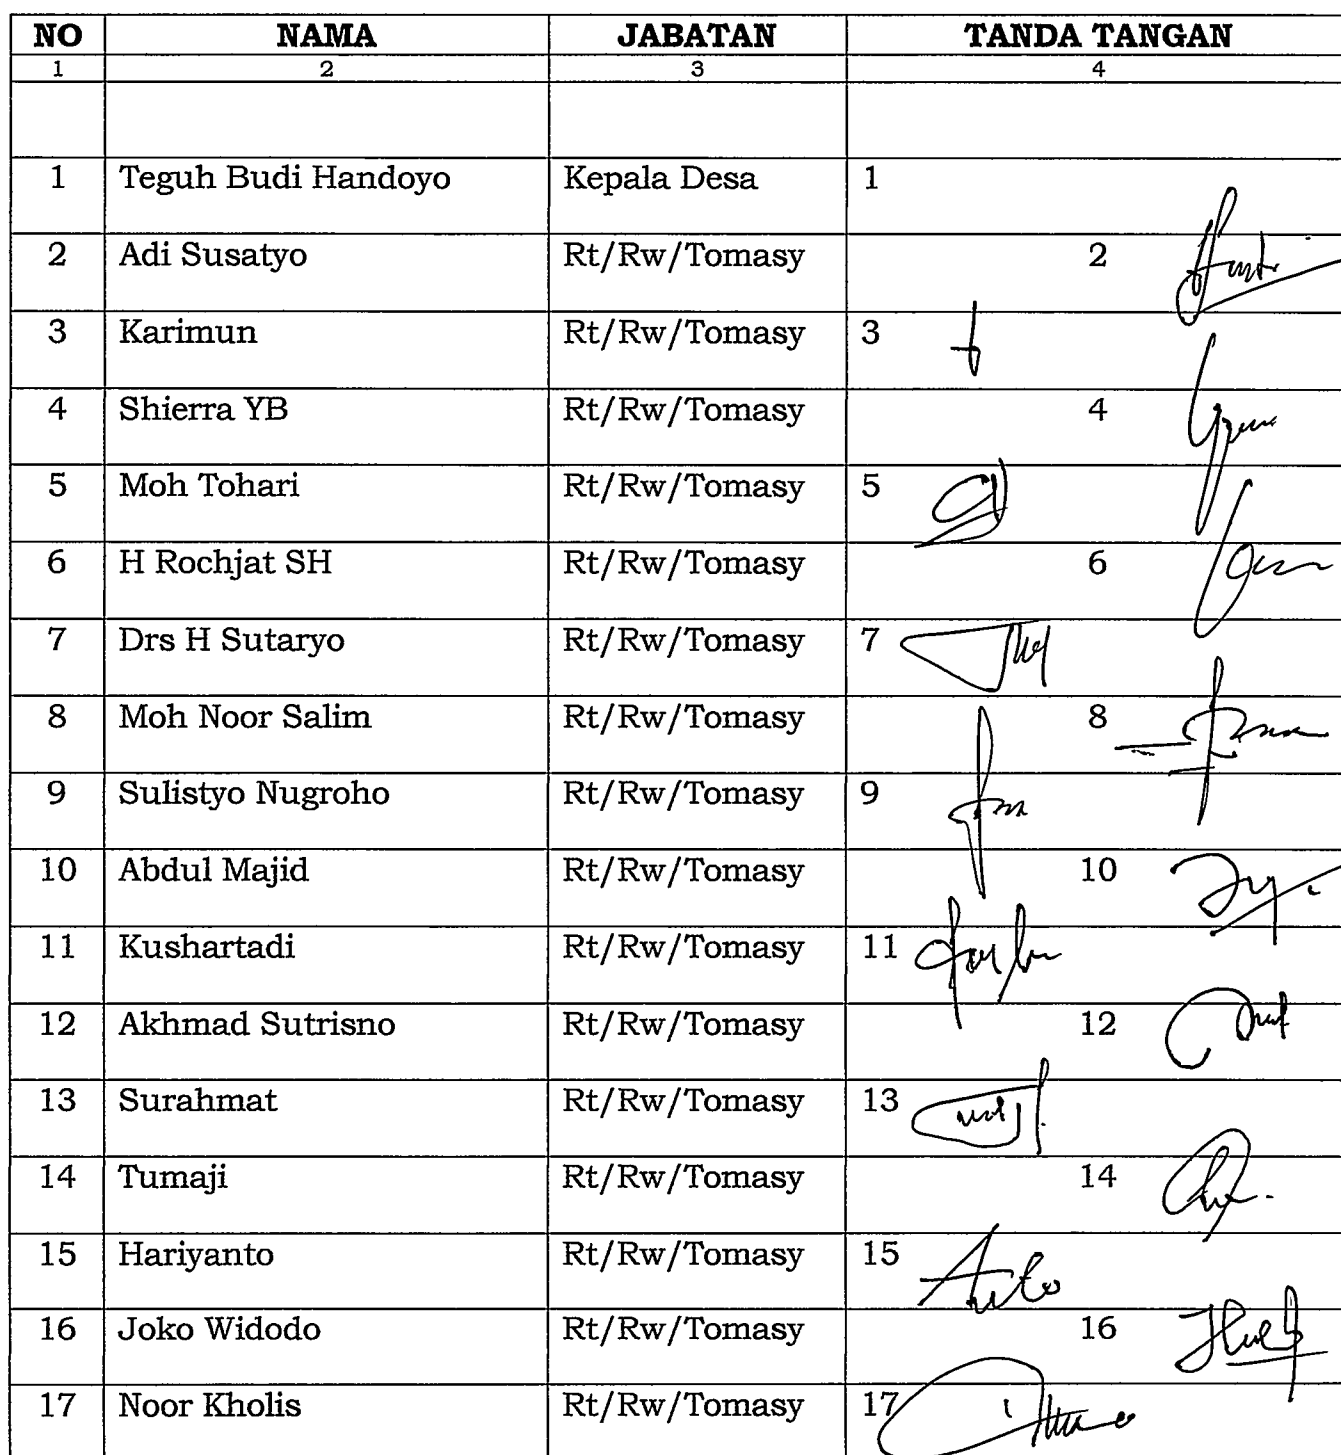 NO NAMA JABATAN TANDA TANGAN
1 2 3 4
1 Teguh Budi Handoyo Kepala Desa 1
2 Adi Susatyo Rt/Rw/Tomasy 2
3 Karimun Rt/Rw/Tomasy 3
4 Shierra YB Rt/Rw/Tomasy 4
5 Moh Tohari Rt/Rw/Tomasy 5
6 H Rochjat SH Rt/Rw/Tomasy 6
7 Drs H Sutaryo Rt/Rw/Tomasy 7
8 Moh Noor Salim Rt/Rw/Tomasy 8
9 Sulistyo Nugroho Rt/Rw/Tomasy 9
10 Abdul Majid Rt/Rw/Tomasy 10
11 Kushartadi Rt/Rw/Tomasy 11
12 Akhmad Sutrisno Rt/Rw/Tomasy 12
13 Surahmat Rt/Rw/Tomasy 13
14 Tumaji Rt/Rw/Tomasy 14
15 Hariyanto Rt/Rw/Tomasy 15
16 Joko Widodo Rt/Rw/Tomasy 16
17 Noor Kholis Rt/Rw/Tomasy 17